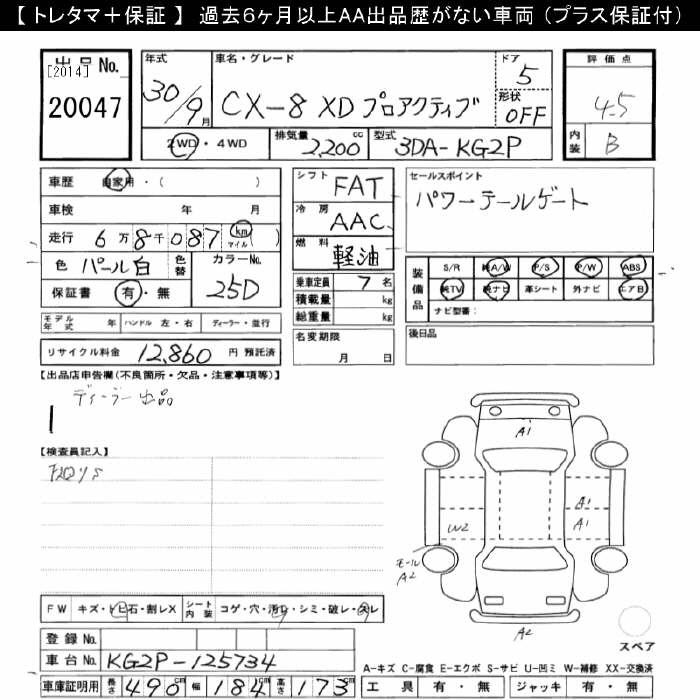 【 トレタマ＋保証 】 過去6ヶ月以上AA出品歴がない車両 (プラス保証付)
出品No.
[2014]
20047
年式
30/9月
車名・グレード
CX-8 XD プロアクティブ
ドア
5
形状
OFF
評価点
4.5
内装
B
2WD・4WD
排気量
2,200cc
型式
3DA-KG2P
車歴 自家用・( )
車検 年 月
走行 6万8千087 km マイル ( )
色 パール白 色替
カラーNo.
25D
保証書 有・無
モデル年式 年 ハンドル 左・右 ディーラー・並行
リサイクル料金 12,860 円 預託済
シフト FAT
冷房 AAC
燃料 軽油
乗車定員 7名
積載量 kg
総重量 kg
名変期限
月 日
セールスポイント
パワーテールゲート
装備品
S/R 純A/W P/S P/W ABS
純TV 純ナビ 革シート 外ナビ エアB
ナビ型番：
後日品
【出品店申告欄(不良箇所・欠品・注意事項等)】
ディーラー出品
【検査員記入】
A1
A1
A1
W2
モール
A2
A2
スペア
FW キズ・トビ石・割レX シート内装 コゲ・穴・汚レ・シミ・破レ・スレ
登録No.
車台No. KG2P-125734
車庫証明用 長さ 490cm 幅 184cm 高さ 173cm
A-キズ C-腐食 E-エクボ S-サビ U-凹ミ W-補修 XX-交換済
工具 有・無 ジャッキ 有・無